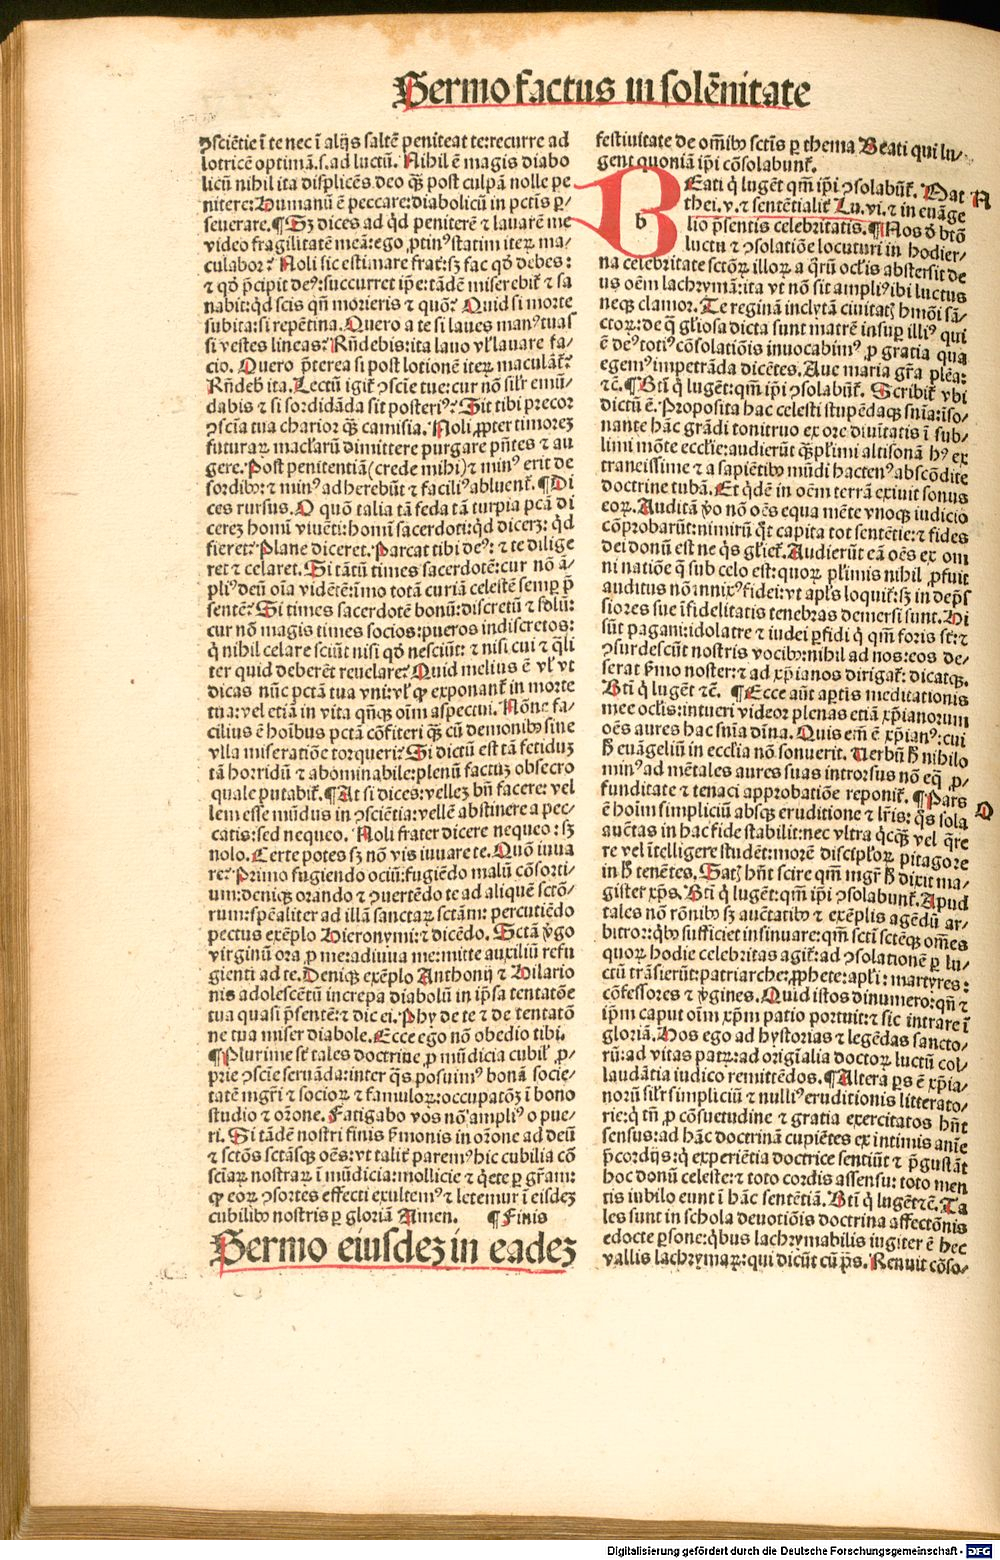 Sermo factus in solēnitate
ꝯsciētie ī te nec ī alijs saltē peniteat te:recurre ad
lotricē optimā.s.ad luctū. Nihil ē magis diabo
licū nihil ita displicēs deo q̄ꝫ post culpā nolle pe
nitere:humanū ē peccare:diabolicū in pctis ꝑ/
seuerare.¶Sꝫ dices ad qd penitere ⁊ lauare me
video fragilitatē meā:ego ꝓtinꝰ statim iteꝝ ma/
culabor? Noli sic estimare frat̄:sꝫ fac qđ debes:
⁊ qđ p̄cipit deꝰ:succurret ip̄e:tādē miserebit̄ ⁊ sa
nabit:qd scis qn̄ morieris ⁊ quō? Quid si morte
subita:si repētina. Quero a te si laues manꝰ tuas
si vestes lineas? Rn̄debis:ita lauo vl̄ lauare fa/
cio. Quero p̄terea si post lotionē iteꝝ maculāt̄?
Rn̄deb̄ ita. Lectū igit̄ ꝯscie tue:cur nō sil̄r emū/
dabis ⁊ si sordidāda sit posteriꝰ? Sit tibi precor
ꝯscia tua charior q̄ꝫ camisia. Noli ꝓpter timoreꝫ
futuraꝝ maclarū dimittere purgare pn̄tes ⁊ au
gere. Post penitentiā(crede mihi)⁊ minꝰ erit de
sordibꝰ:⁊ minꝰ adherebūt ⁊ faciliꝰ abluent̄. ¶Di
ces rursus. O quō talia tā feda tā turpia pctā di
cereꝫ homī viuēti:homī sacerdoti:qd dicerꝫ: qd
fieret? Plane diceret. Parcat tibi deꝰ: ⁊ te dilige
ret ⁊ celaret. Si tātū times sacerdotē:cur nō ā/
pliꝰ deū oīa vidētē:īmo totā curiā celestē semꝑ p̄
sentē? Si times sacerdotē bonū:discretū ⁊ solū:
cur nō magis times socios:pueros indiscretos:
q̄ nihil celare sciūt nisi qđ nesciūt: ⁊ nisi cui ⁊ q̄li
ter quid deberēt reuelare? Quid melius ē vl̄ vt
dicas nūc pctā tua vni:vl̄ ꝙ exponant̄ in morte
tua:vel etiā in vita qn̄qꝫ oīm aspectui. Nōne fa/
cilius ē hoībus pctā cōfiteri q̄ꝫ cū demonibꝰ sine
vlla miseratiōe torqueri? Si dictū est tā fetiduꝫ
tā horridū ⁊ abominabile:plenū factuꝫ obsecro
quale putabit̄. ¶At si dices:velleꝫ bn̄ facere: vel
lem esse mūdus in ꝯsciētia:vellē abstinere a pec/
catis:sed nequeo. Noli frater dicere nequeo: sꝫ
nolo. Certe potes sꝫ nō vis iuuare te. Quō iuua
re? Primo fugiendo ociū:fugiēdo malū cōsorti/
um:deniqꝫ orando ⁊ ꝯuertēdo te ad aliquē sctō/
rum:sp̄ealiter ad illā sanctaꝝ sctām: percutiēdo
pectus exēplo Hieronymi:⁊ dicēdo. Sctā v̄go
virginū ora ꝓ me:adiuua me:mitte auxiliū refu
gienti ad te. Deniqꝫ exēplo Anthonij ⁊ Hilario
nis adolescētū increpa diabolū in ip̄sa tentatōe
tua quasi p̄sentē:⁊ dic ei. Phy de te ⁊ de tentatō
ne tua miser diabole. Ecce ego nō obedio tibi.
¶Plurime sūt tales doctrine ꝓ mūdicia cubil̄ ꝓ/
prie ꝯscie seruāda:inter q̄s posuimꝰ bonā socie/
tatē mgr̄i ⁊ socioꝝ ⁊ famuloꝝ:occupatōꝫ ī bono
studio ⁊ or̄one. Fatigabo vos nō ampliꝰ o pue/
ri. Si tādē nostri finis s̄monis in or̄one ad deū
⁊ sctōs sctāsqꝫ oēs:vt talit̄ paremꝰ hic cubilia cō
sciaꝝ nostraꝝ ī mūdicia:mollicie ⁊ q̄ete ꝑ gr̄am:
ꝙ eoꝝ ꝯsortes effecti exultemꝰ ⁊ letemur ī eisdeꝫ
cubilibꝰ nostris ꝑ gloriā Amen. ¶Finis
Sermo eiusdeꝫ in eadeꝫ
festiuitate de oībꝰ sctīs ꝑ thema Beati qui lu/
gent quoniā ip̄i cōsolabunt̄.
b
BEati q̄ lugēt qm̄ ip̄i ꝯsolabūt̄. Mat
thei.v.⁊ sentētialit̄ Lu.vi.⁊ in euāge
lio p̄sentis celebritatis. ¶Nos đ btō
luctu ⁊ ꝯsolatiōe locuturi in hodier/
na celebritate sctōꝝ illoꝝ a q̄rū oc̄lis abstersit de
us oēm lachrymā:ita vt nō sit ampliꝰ ibi luctus
neqꝫ clamor. Te reginā inclytā ciuitat̄ hmōi sā/
ctoꝝ:de q̄ gl̄iosa dicta sunt matrē insuꝑ illiꝰ qui
ē deꝰ totiꝰ cōsolatiōis inuocabimꝰ ꝓ gratia qua
egemꝰ impetrāda dicētes. Aue maria gr̄a plēa:
⁊c̄. ¶Btī q̄ lugēt:qm̄ ip̄i ꝯsolabūt̄. Scribit̄ vbi
dictū ē. Proposita hac celesti stupēdaqꝫ snīa:īso/
nante hāc grādi tonitruo ex ore diuītatis ī sub/
limi mōte ecclie:audierūt q̄ꝫpl̄imi altisonā hꝰ ex
traneissime ⁊ a sapiētibꝰ mūdi hactenꝰ abscōdite
doctrine tubā. Et q̄dē in oēm terrā exiuit sonus
eoꝝ. Auditā v̄o nō oēs equa mēte vnoqꝫ iudicio
cōprobarūt:nimirū q̄t capita tot sentētie:⁊ fides
dei donū est ne q̄s gl̄iet̄. Audierūt eā oēs ex om
ni natiōe q̄ sub celo est:quoꝝ pl̄imis nihil ꝓfuit
auditus nō innixꝰ fidei:vt apl̄s loquit̄:sꝫ in dep̄s
siores sue īfidelitatis tenebras demersi sunt. Hi
sūt pagani:idolatre ⁊ iudei ꝑfidi q̄ qm̄ foris st̄:⁊
ꝯsurdescūt nostris vocibꝰ:nihil ad nos:eos de/
serat s̄mo noster:⁊ ad xp̄ianos dirigat̄:dicatqꝫ.
Btī q̄ lugēt ⁊c̄. ¶Ecce aūt aꝑtis meditationis
mee oc̄lis:intueri videor plenas etiā xp̄ianorum
oēs aures hac snīa dīna. Quis em̄ ē xp̄ianꝰ:cui
h̄ euāgeliū in ecclia nō sonuerit. Verbū h̄ nihilo
minꝰ ad mētales aures suas introrsus nō eq̄ ꝓ/
funditate ⁊ tenaci approbatiōe reponit̄. ¶Pars
ē hoīm simpliciū absqꝫ eruditione ⁊ lr̄is: q̄s sola
auētas in hac fide stabilit:nec vltra q̄cqꝫ vel q̄re
re vel ītelligere studēt:morē discipl̄oꝝ pitagore
in h̄ tenētes. Satꝫ hn̄t scire qm̄ mgr̄ h̄ dixit ma/
gister xp̄s. Btī q̄ lugēt:qm̄ ip̄i ꝯsolabunt̄. Apud
tales nō rōnibꝰ sꝫ auētatibꝰ ⁊ exēplis agēdū ar/
bitror:q̄bꝰ sufficiet insinuare:qm̄ sctī sctēqꝫ om̄es
quoꝝ hodie celebritas agit̄:ad ꝯsolationē ꝑ lu/
ctū trāsierūt:patriarche:ꝓphete:apl̄i: martyres:
cōfessores ⁊ v̄gines. Quid istos dinumero:qn̄ ⁊
ip̄m caput oīm xp̄m patio portuit:⁊ sic intrare ī
gloriā. Hos ego ad hystorias ⁊ legēdas sancto/
rū:ad vitas patꝝ:ad origīalia doctoꝝ luctū col/
laudātia iudico remittēdos. ¶Altera ꝑs ē xp̄ia/
norū sil̄r simpliciū ⁊ nulliꝰ eruditionis litterato/
rie:q̄ tn̄ ꝓ cōsuetudine ⁊ gratia exercitatos hn̄t
sensus:ad hāc doctrinā cupiētes ex intimis anīe
p̄cordijs:q̄ experiētia doctrice sentiūt ⁊ p̄gustāt
hoc donū celeste:⁊ toto cordis assensu: toto men
tis iubilo eunt ī hāc sentētiā. Btī q̄ lugēt ⁊c̄. Ta
les sunt in schola deuotiōis doctrina affectōnis
edocte ꝑsone:q̄bus lachrymabilis iugiter ē hec
vallis lachrymaꝝ:qui dicūt cū p̄s. Renuit cōso/
N
O
Digitalisierung gefördert durch die Deutsche Forschungsgemeinschaft - DFG